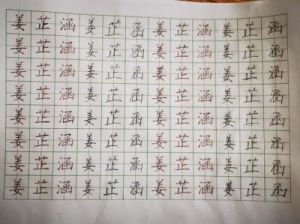 姜芷涵姜芷涵姜芷涵姜芷涵
姜芷涵姜芷涵姜芷涵姜芷涵
姜芷涵姜芷涵姜芷涵姜芷涵
姜芷涵姜芷涵姜芷涵姜芷涵
姜芷涵姜芷涵姜芷涵姜芷涵
姜芷涵姜芷涵姜芷涵姜芷涵
姜芷涵姜芷涵姜芷涵姜芷涵
姜芷涵姜芷涵姜芷涵姜芷涵